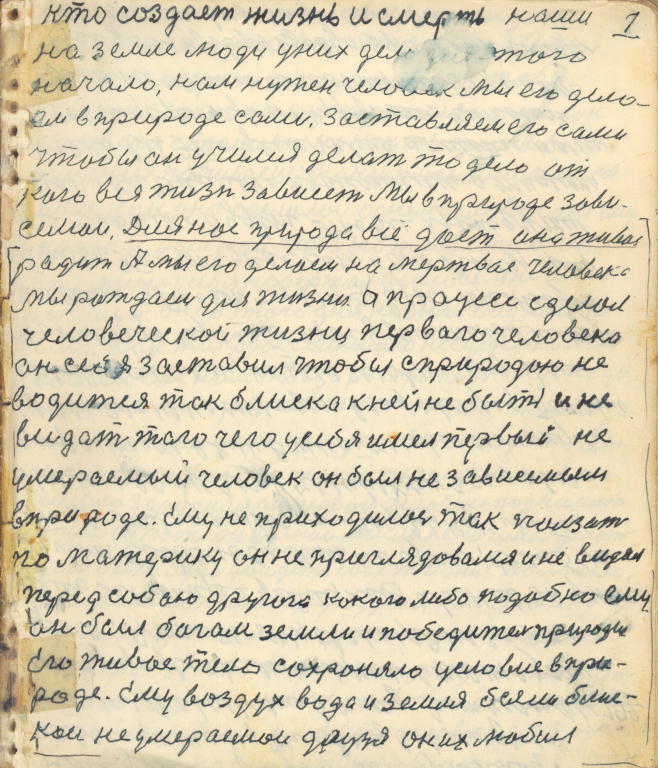 кто создает жизнь и смерть наши 1
на земле люди у них дел для того
начало, нам нужен человек мы его дела-
ем в природе сами. Заставляем его сами
чтобы он учился делат то дело от
кого вся жизн зависет мы в природе зави-
семои. Для нас природа всё дает она живая
радит А мы его делоем на мертвае человека
мы рождаем для жизни а процесс сделол
человеческой жизни перваго человека
он себя заставил чтобы с природою не
водится так блиска к ней не быт и не
видат того чего у себя имел первый не
умераемый человек он был не зависемым
в природе. Ему не приходилос так ползат
по материку он не приглядовался и не видал
перед собою другога какого либо подобно ему
он был богам земли и победител природы
Его живое тело сохроняло условие в при-
роде. Ему воздух вода и земля были блис-
кои не умераемои друзя он их любил